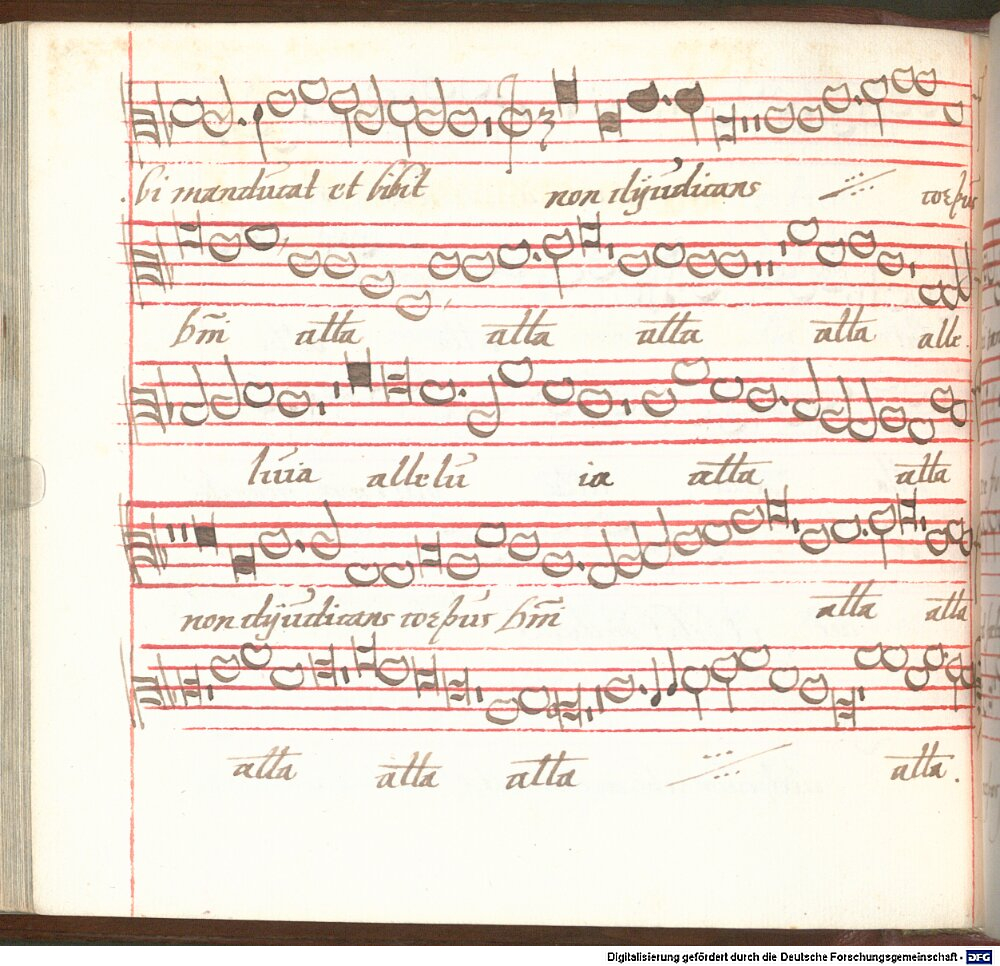 bi manducat et bibit non dijudicans corpus
dñi alla alla alla alla alle
luia allelu ia alla alla
non dijudicans corpus dñi alla alla
alla alla alla alla.
Digitalisierung gefördert durch die Deutsche Forschungsgemeinschaft - DFG